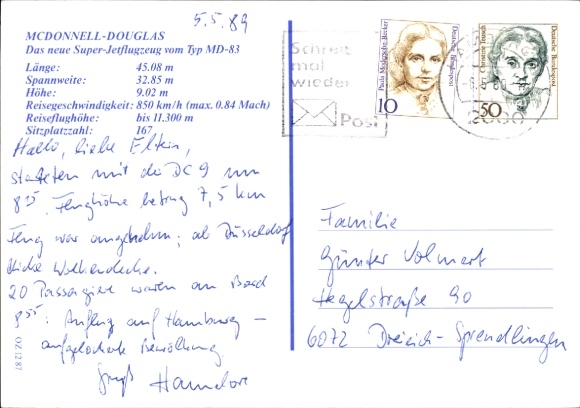 5.5.89
MCDONNELL-DOUGLAS
Das neue Super-Jetflugzeug vom Typ MD-83
Länge: 45.08 m
Spannweite: 32.85 m
Höhe: 9.02 m
Reisegeschwindigkeit: 850 km/h (max. 0.84 Mach)
Reiseflughöhe: bis 11.300 m
Sitzplatzzahl: 167
Hallo, liebe Eltern,
starteten mit die DC 9 um
8²⁵. Flughöhe betrug 7,5 km
Flug war angenehm; ab Düsseldorf
dicke Wolkendecke.
20 Passagiere waren an Bord
8⁵⁵: Anflug auf Hamburg –
aufgelockerte Bewölkung
Gruß
OZ 12 87
Schreib
mal
wieder
Post
Paula Modersohn-Becker
Deutsche Bundespost
10
Christine Teusch
Deutsche Bundespost
50
Familie
Günter Volmert
Hegelstraße 90
6072 Dreieich-Sprendlingen